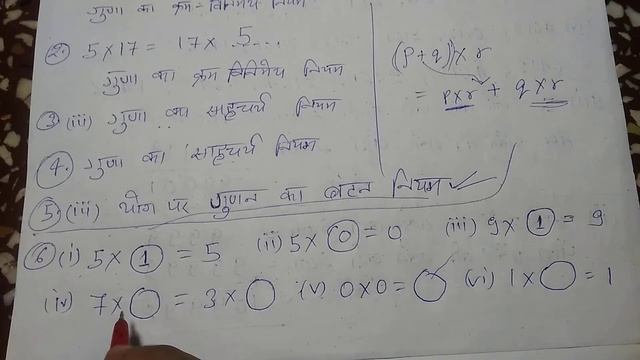 गुणा का क्रम-विनिमेय नियम
2. 5×17 = 17× 5...
गुणा का क्रम विनिमेय नियम
3 (iii) गुणा का साहचर्य नियम
4. गुणा का साहचर्य नियम
5. (iii) योग पर गुणन का बंटन नियम ✓
(p+q)×r
= p×r + q×r
6 (i) 5×1 = 5 (ii) 5×0 = 0 (iii) 9×1 = 9
(iv) 7×○ = 3×○ (v) 0×0=○ (vi) 1×○ = 1